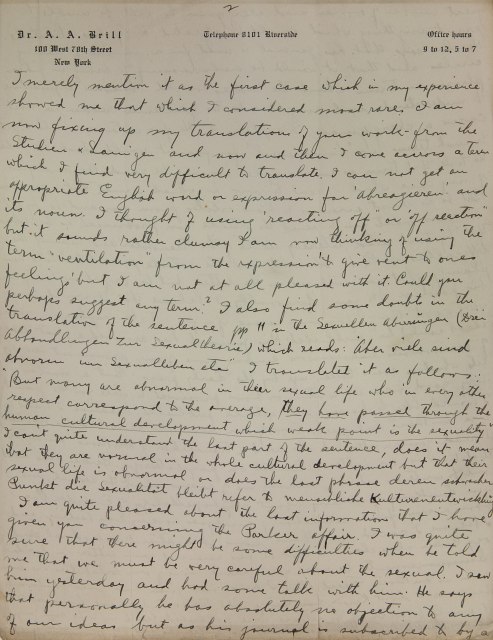 2
Dr. A. A. Brill
Telephone 8101 Riverside
Office hours
109 West 78th Street
9 to 12, 5 to 7
New York
I merely mention it as the first case which in my experience
showed me that which I considered most rare. I am
now fixing up my translation of your work from the
Studien & and now and then I come across a term
which I find very difficult to translate. I can not get an
appropriate English word or expression for 'abreagieren' and
its noun. I thought of using 'reacting off' or 'off reaction'
but it sounds rather clumsy. I am now thinking of using the
term "ventilation" from the expression 'to give vent to ones
feelings' but I am not at all pleased with it. Could you
perhaps suggest any term? I also find some doubts in the
translation of the sentence pp 11 in the Sexuellen Abirrungen (Drei
Abhandlungen zur Sexualtheorie) which reads: 'Aber viele sind
abnorm im Sexualleben etc' I translated it as follows:
"But many are abnormal in their sexual life who in every other
respect correspond to the average, they have passed through the
human cultural development which weak point is the sexuality"
I can't quite understand the last part of the sentence, does it mean
that they are normal in the whole cultural development but that their
sexual life is abnormal or does the last phrase deren schwacher
Punkt die Sexualität bleibt refer to menschliche Kulturentwicklung
I am quite pleased about the last information that I have
given you concerning the Parker affair. I was quite
sure that there might be some difficulties when he told
me that we must be very careful about the sexual. I saw
him yesterday and had some talk with him. He says
that personally he has absolutely no objection to any
of our ideas but as his journal is subscribed to by